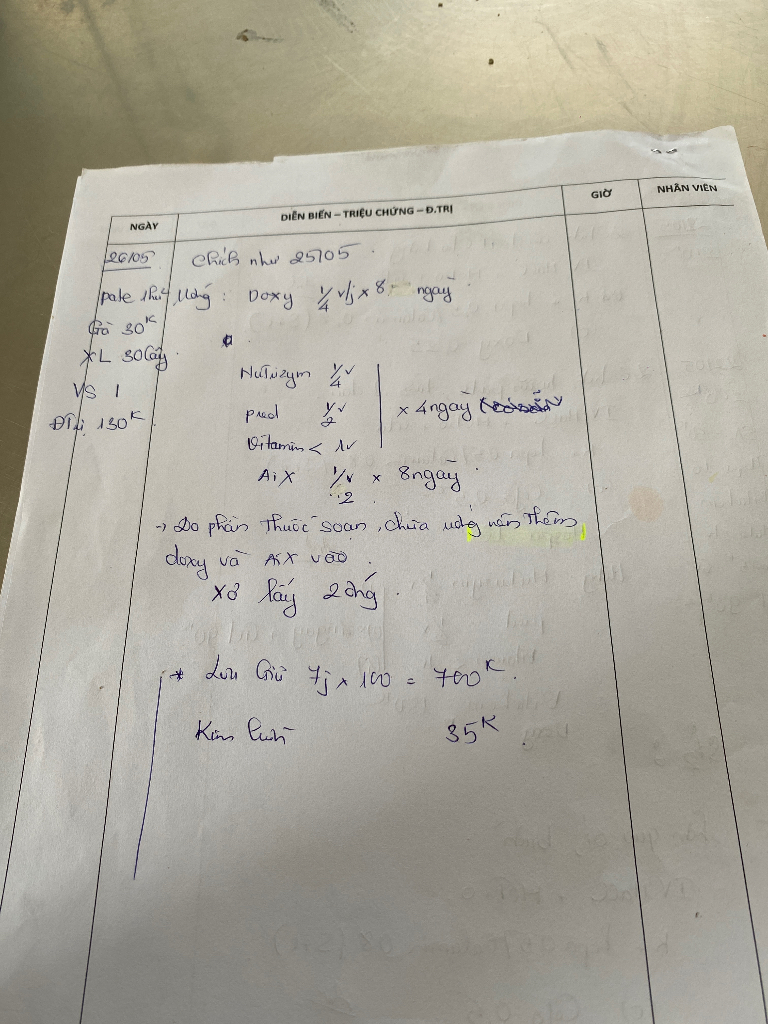 NGÀY DIỄN BIẾN – TRIỆU CHỨNG – Đ.TRỊ GIỜ NHÂN VIÊN
26/05 chích như 25/05
pate Uống : Doxy 1/4 v/j x 8 ngày
Gà 30K
XL 30
Nutrizym 1/4 v
VS 1
pred 1/2 v x 4 ngày
ĐTrị 130K
Vitamin C 1v
AiX 1/2 v x 8 ngày
→ Do phần thuốc soạn, chưa uống nên thêm
doxy và AiX vào
lấy 2 ống
* Lưu Giữ 7j x 100 = 700K
Kim luồn 35K